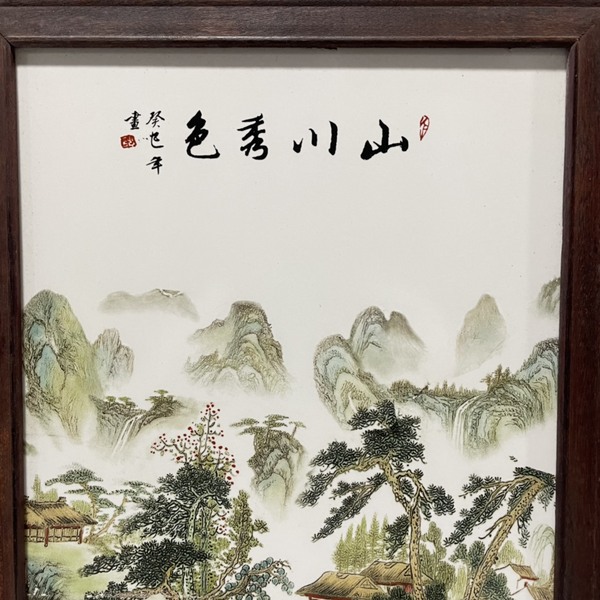 山川秀色
癸巳年
畫